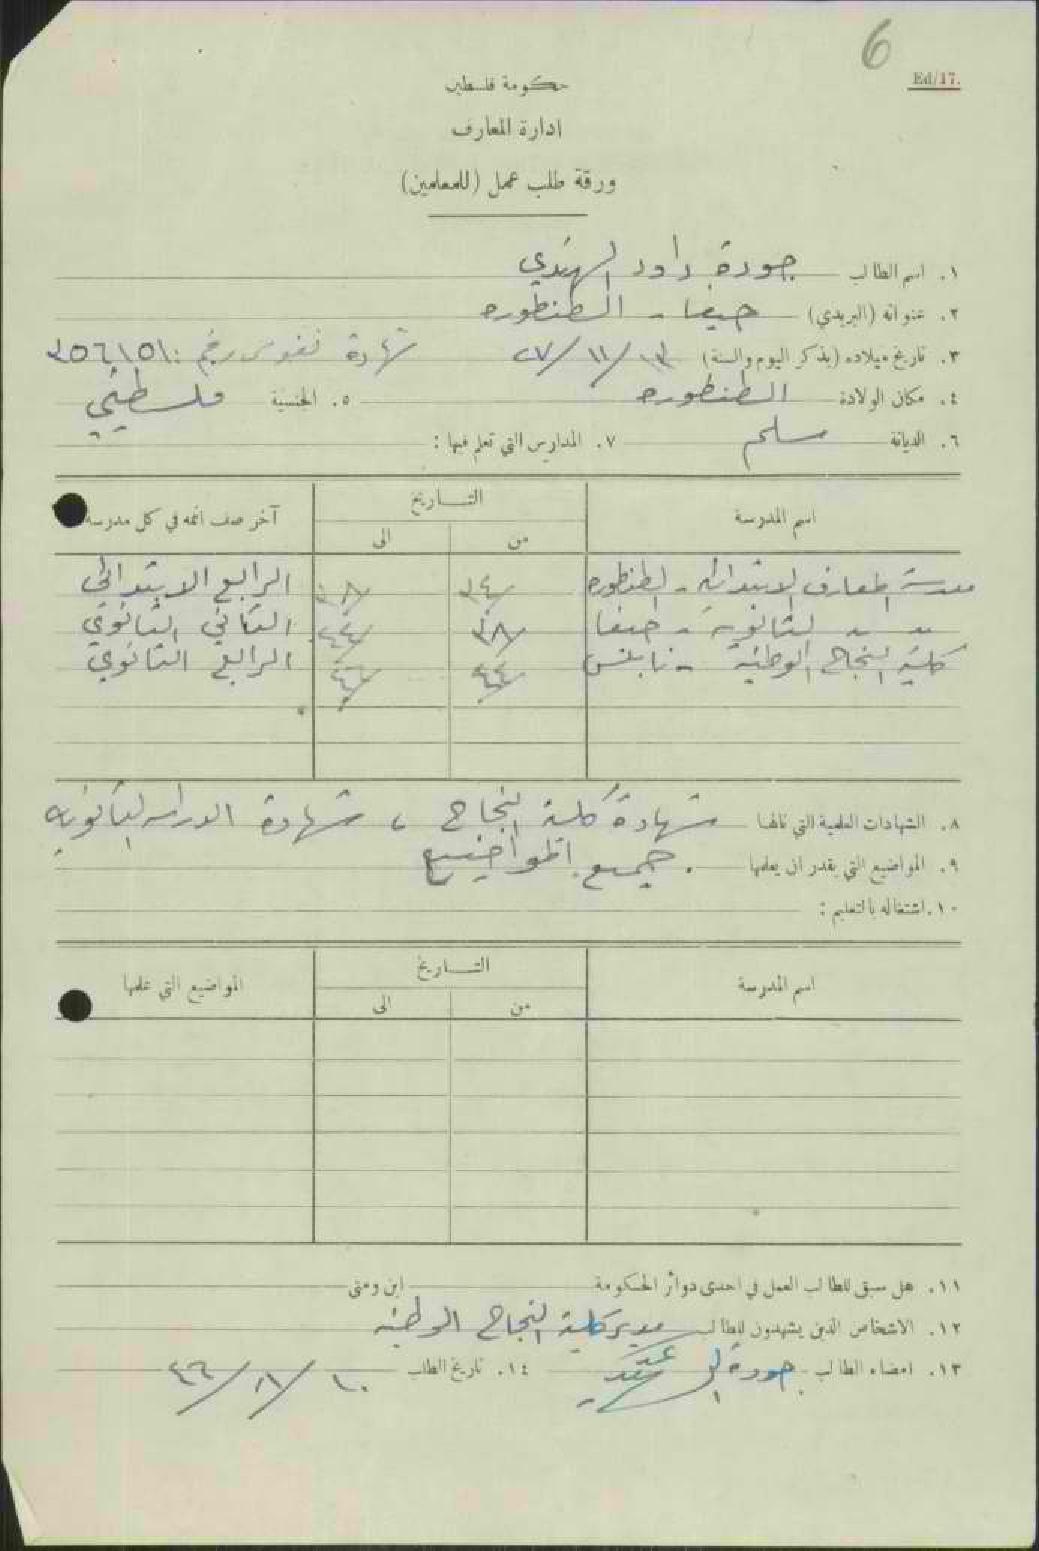 6
Ed/17.
حكومة فلسطين
ادارة المعارف
ورقة طلب عمل (للمعلمين)
١. اسم الطالب جودة داود الهندي
٢. عنوانه (البريدي) حيفا - الطنطوره
٣. تاريخ ميلاده (بذكر اليوم والسنة) ٢٧/١١/ شهادة نفوس رقم:
٤. مكان الولادة الطنطوره ٥. الجنسية فلسطيني
٦. الديانة مسلم ٧. المدارس التي تعلم فيها :
اسم المدرسة التاريخ آخر صف اتمه في كل مدرسة
من الى
مدرسة المعارف الابتدائية - الطنطوره ٣٤ ٣٨ الرابع الابتدائي
" " الثانوية - حيفا ٣٨ ٤٤ الثاني الثانوي
كلية النجاح الوطنية - نابلس ٤٤ ٤٦ الرابع الثانوي
٨. الشهادات العلمية التي نالها شهادة كلية النجاح ، شهادة الدراسة الثانوية
٩. المواضيع التي يقدر ان يعلمها جميع المواضيع
١٠. اشتغاله بالتعليم :
اسم المدرسة التاريخ المواضيع التي علمها
من الى
١١. هل سبق للطالب العمل في احدى دوائر الحكومة اين ومتى
١٢. الاشخاص الذين يشهدون للطالب مدير كلية النجاح الوطنية
١٣. امضاء الطالب جودة ١٤. تاريخ الطلب ٤٦/ /١٠